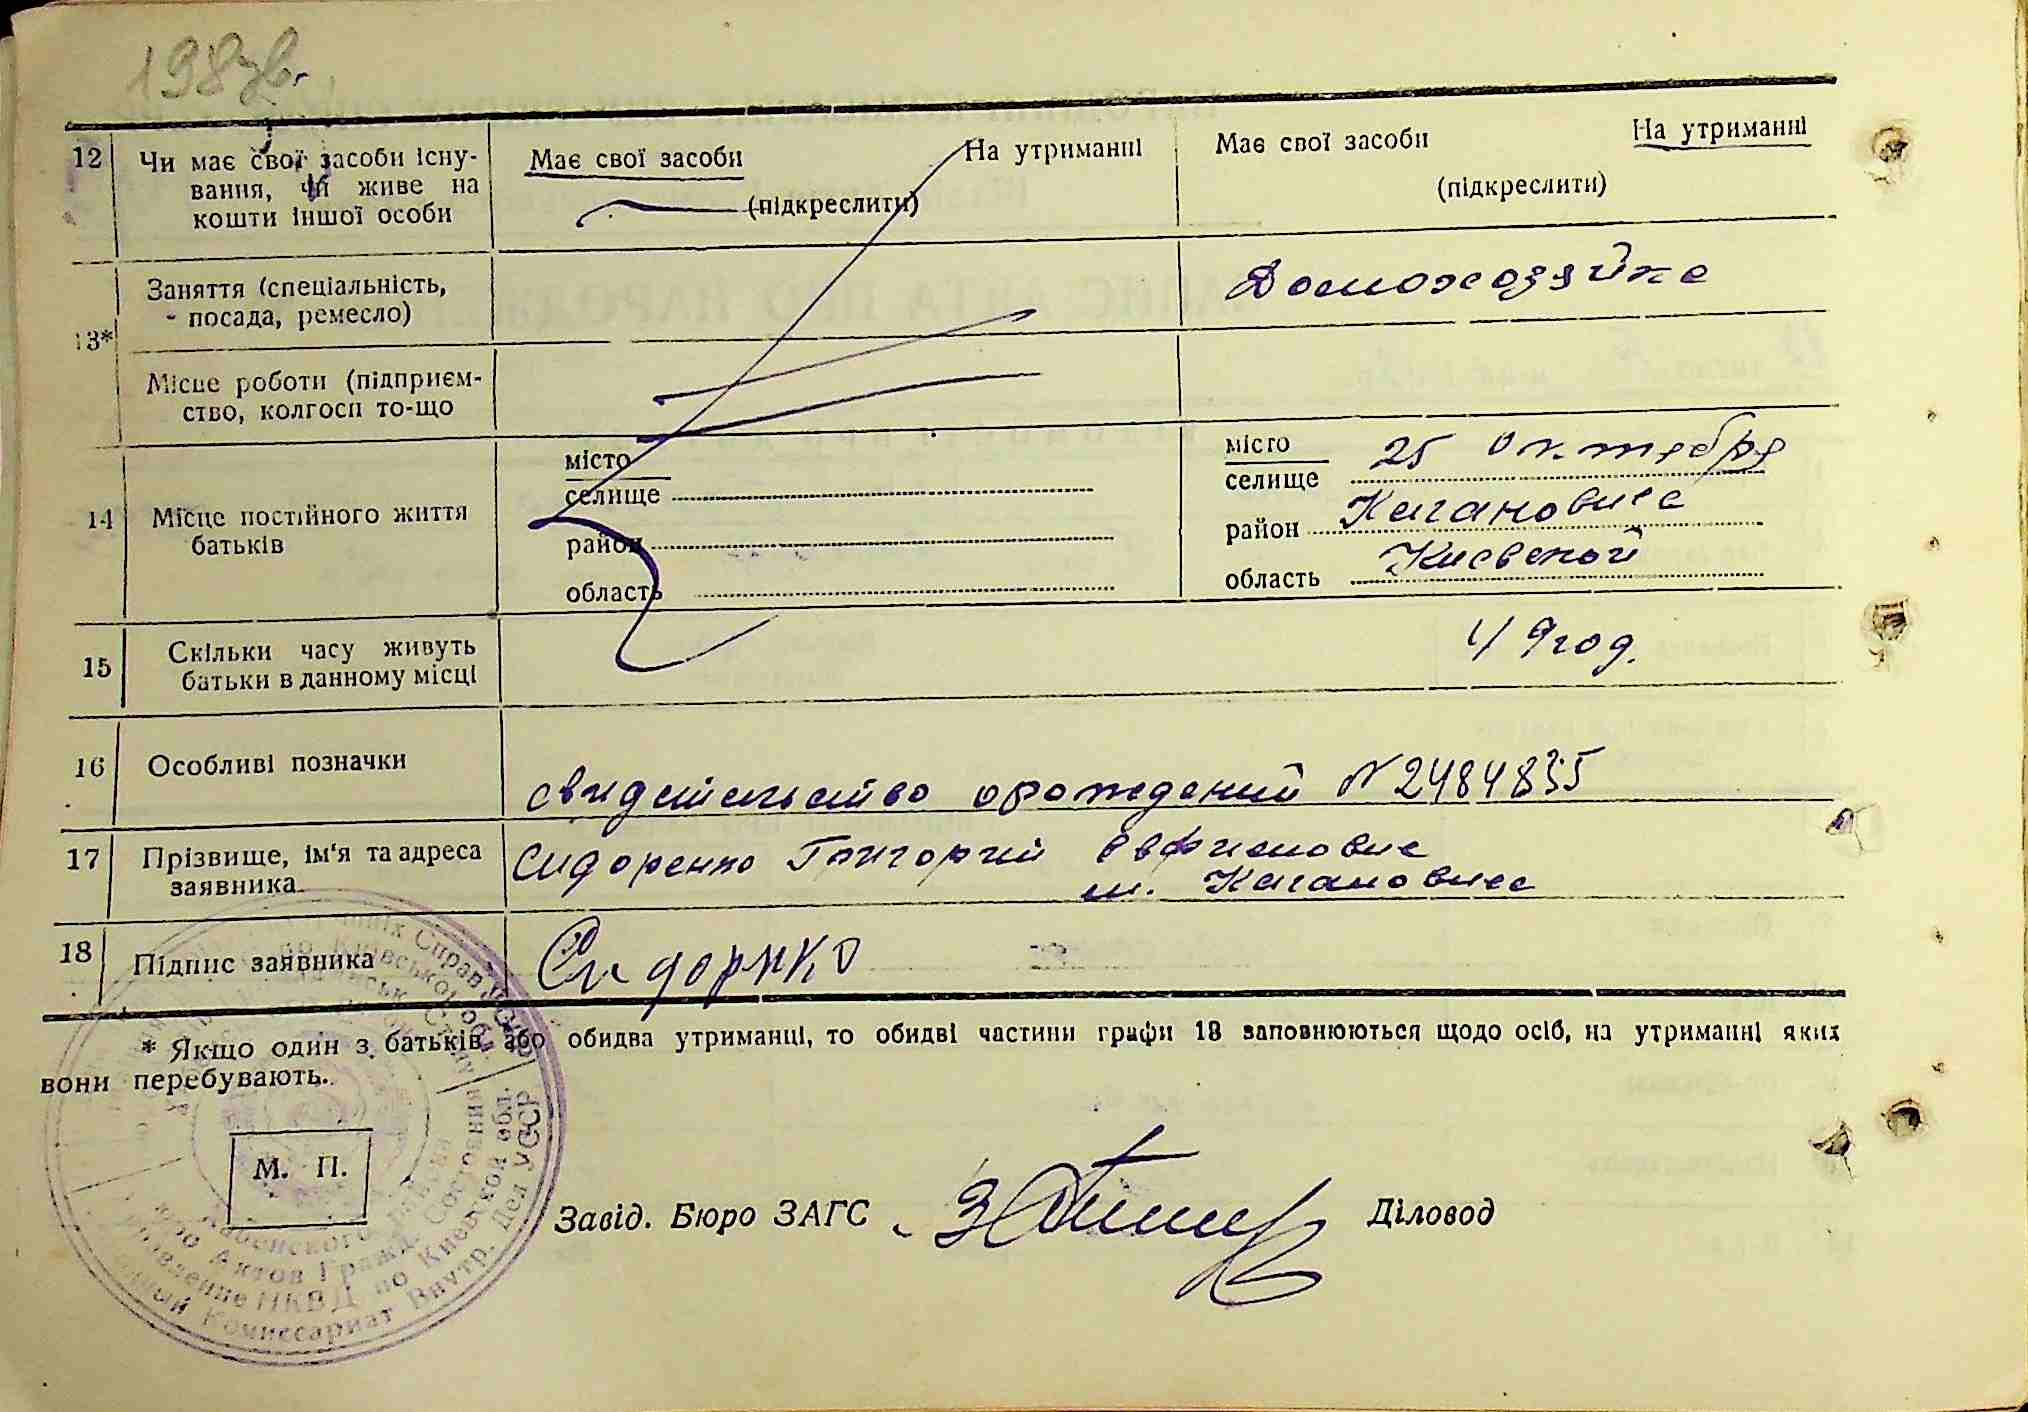 12 Чи має свої засоби існу-
вання, чи живе на
кошти іншої особи
Має свої засоби На утриманні
(підкреслити)
Має свої засоби На утриманні
(підкреслити)
13*
Заняття (спеціальність,
посада, ремесло)
Домохозяйка
Місце роботи (підприєм-
ство, колгосп то-що
14 Місце постійного життя
батьків
місто
селище
район
область
місто
селище 25 Октября
район Каганович
область Киевской
15 Скільки часу живуть
батьки в данному місці
49 год.
16 Особливі позначки
свидетельство о рождений N 2484835
17 Прізвище, ім'я та адреса
заявника
Сидоренко Григорий Евфимович
м. Каганович
18 Підпис заявника
Сидорнко
* Якщо один з батьків, або обидва утриманці, то обидві частини графи 13 заповнюються щодо осіб, на утриманні яких
вони перебувають.
М. П.
Завід. Бюро ЗАГС
Діловод
Бюро Актов Гражд. Состояния
Управление НКВД по Киевской обл.
Комиссариат Внутр. Дел УССР